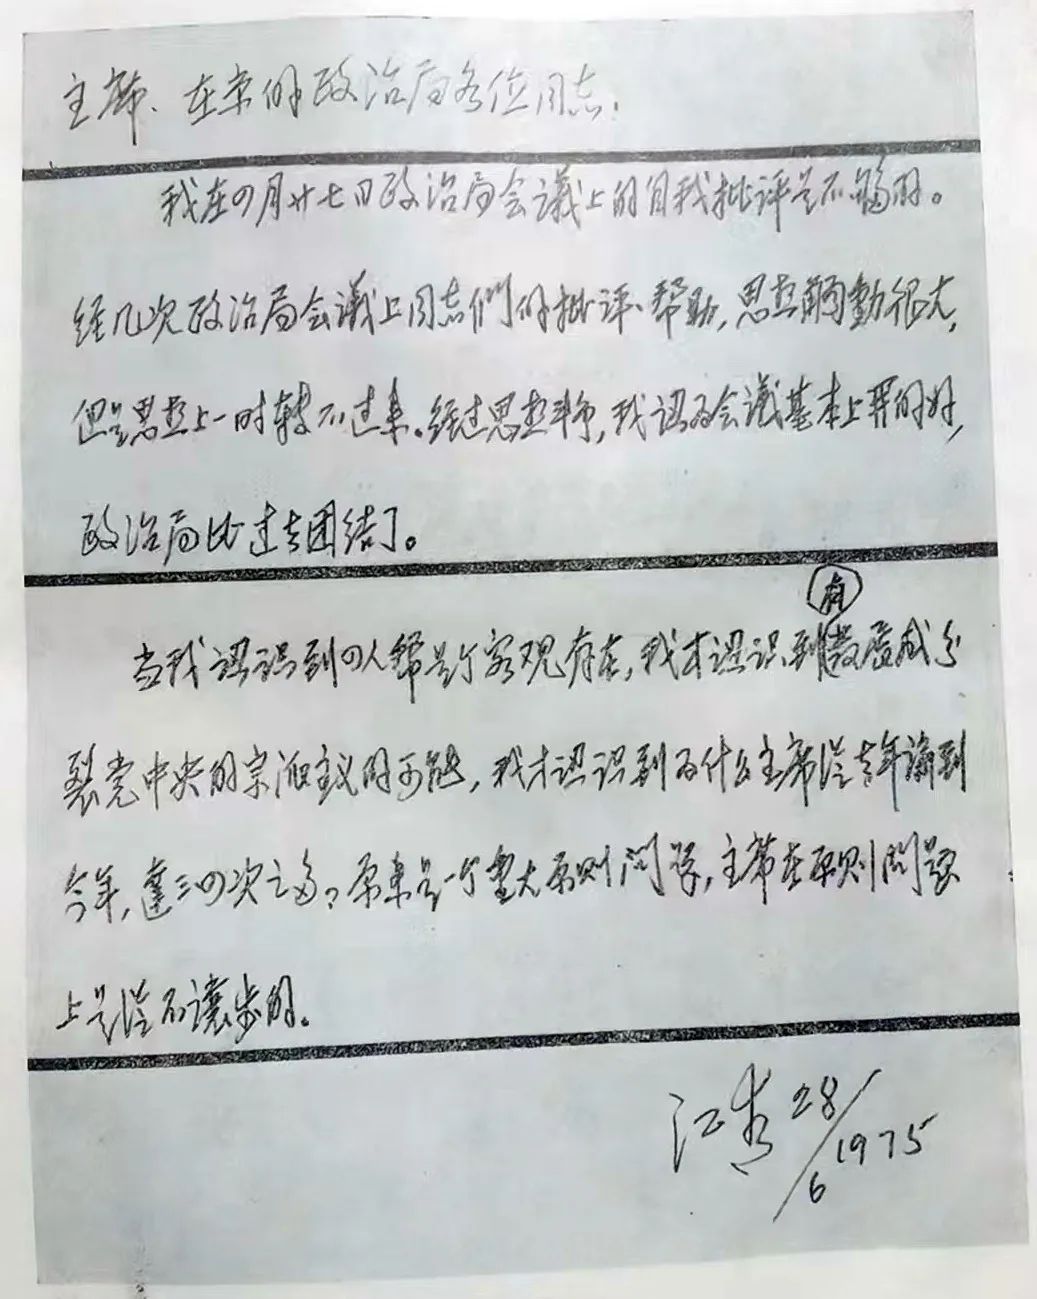 主席、在京的政治局各位同志:
我在四月廿七日政治局会議上的自我批评是不够的。
经几次政治局会議上同志們的批评、帮助,思想觸動很大,
但是思想上一时轉不过来。经过思想斗争,我认为会議基本上开的好,
政治局比过去团结了。
有
当我认识到四人帮是个客观存在,我才认识到發展成分
裂党中央的宗派主义的可能,我才认识到为什么主席从去年講到
今年,達三四次之多?原来是一个重大原则问题,主席在原则问题
上是从不讓步的。
江青 28/6 1975